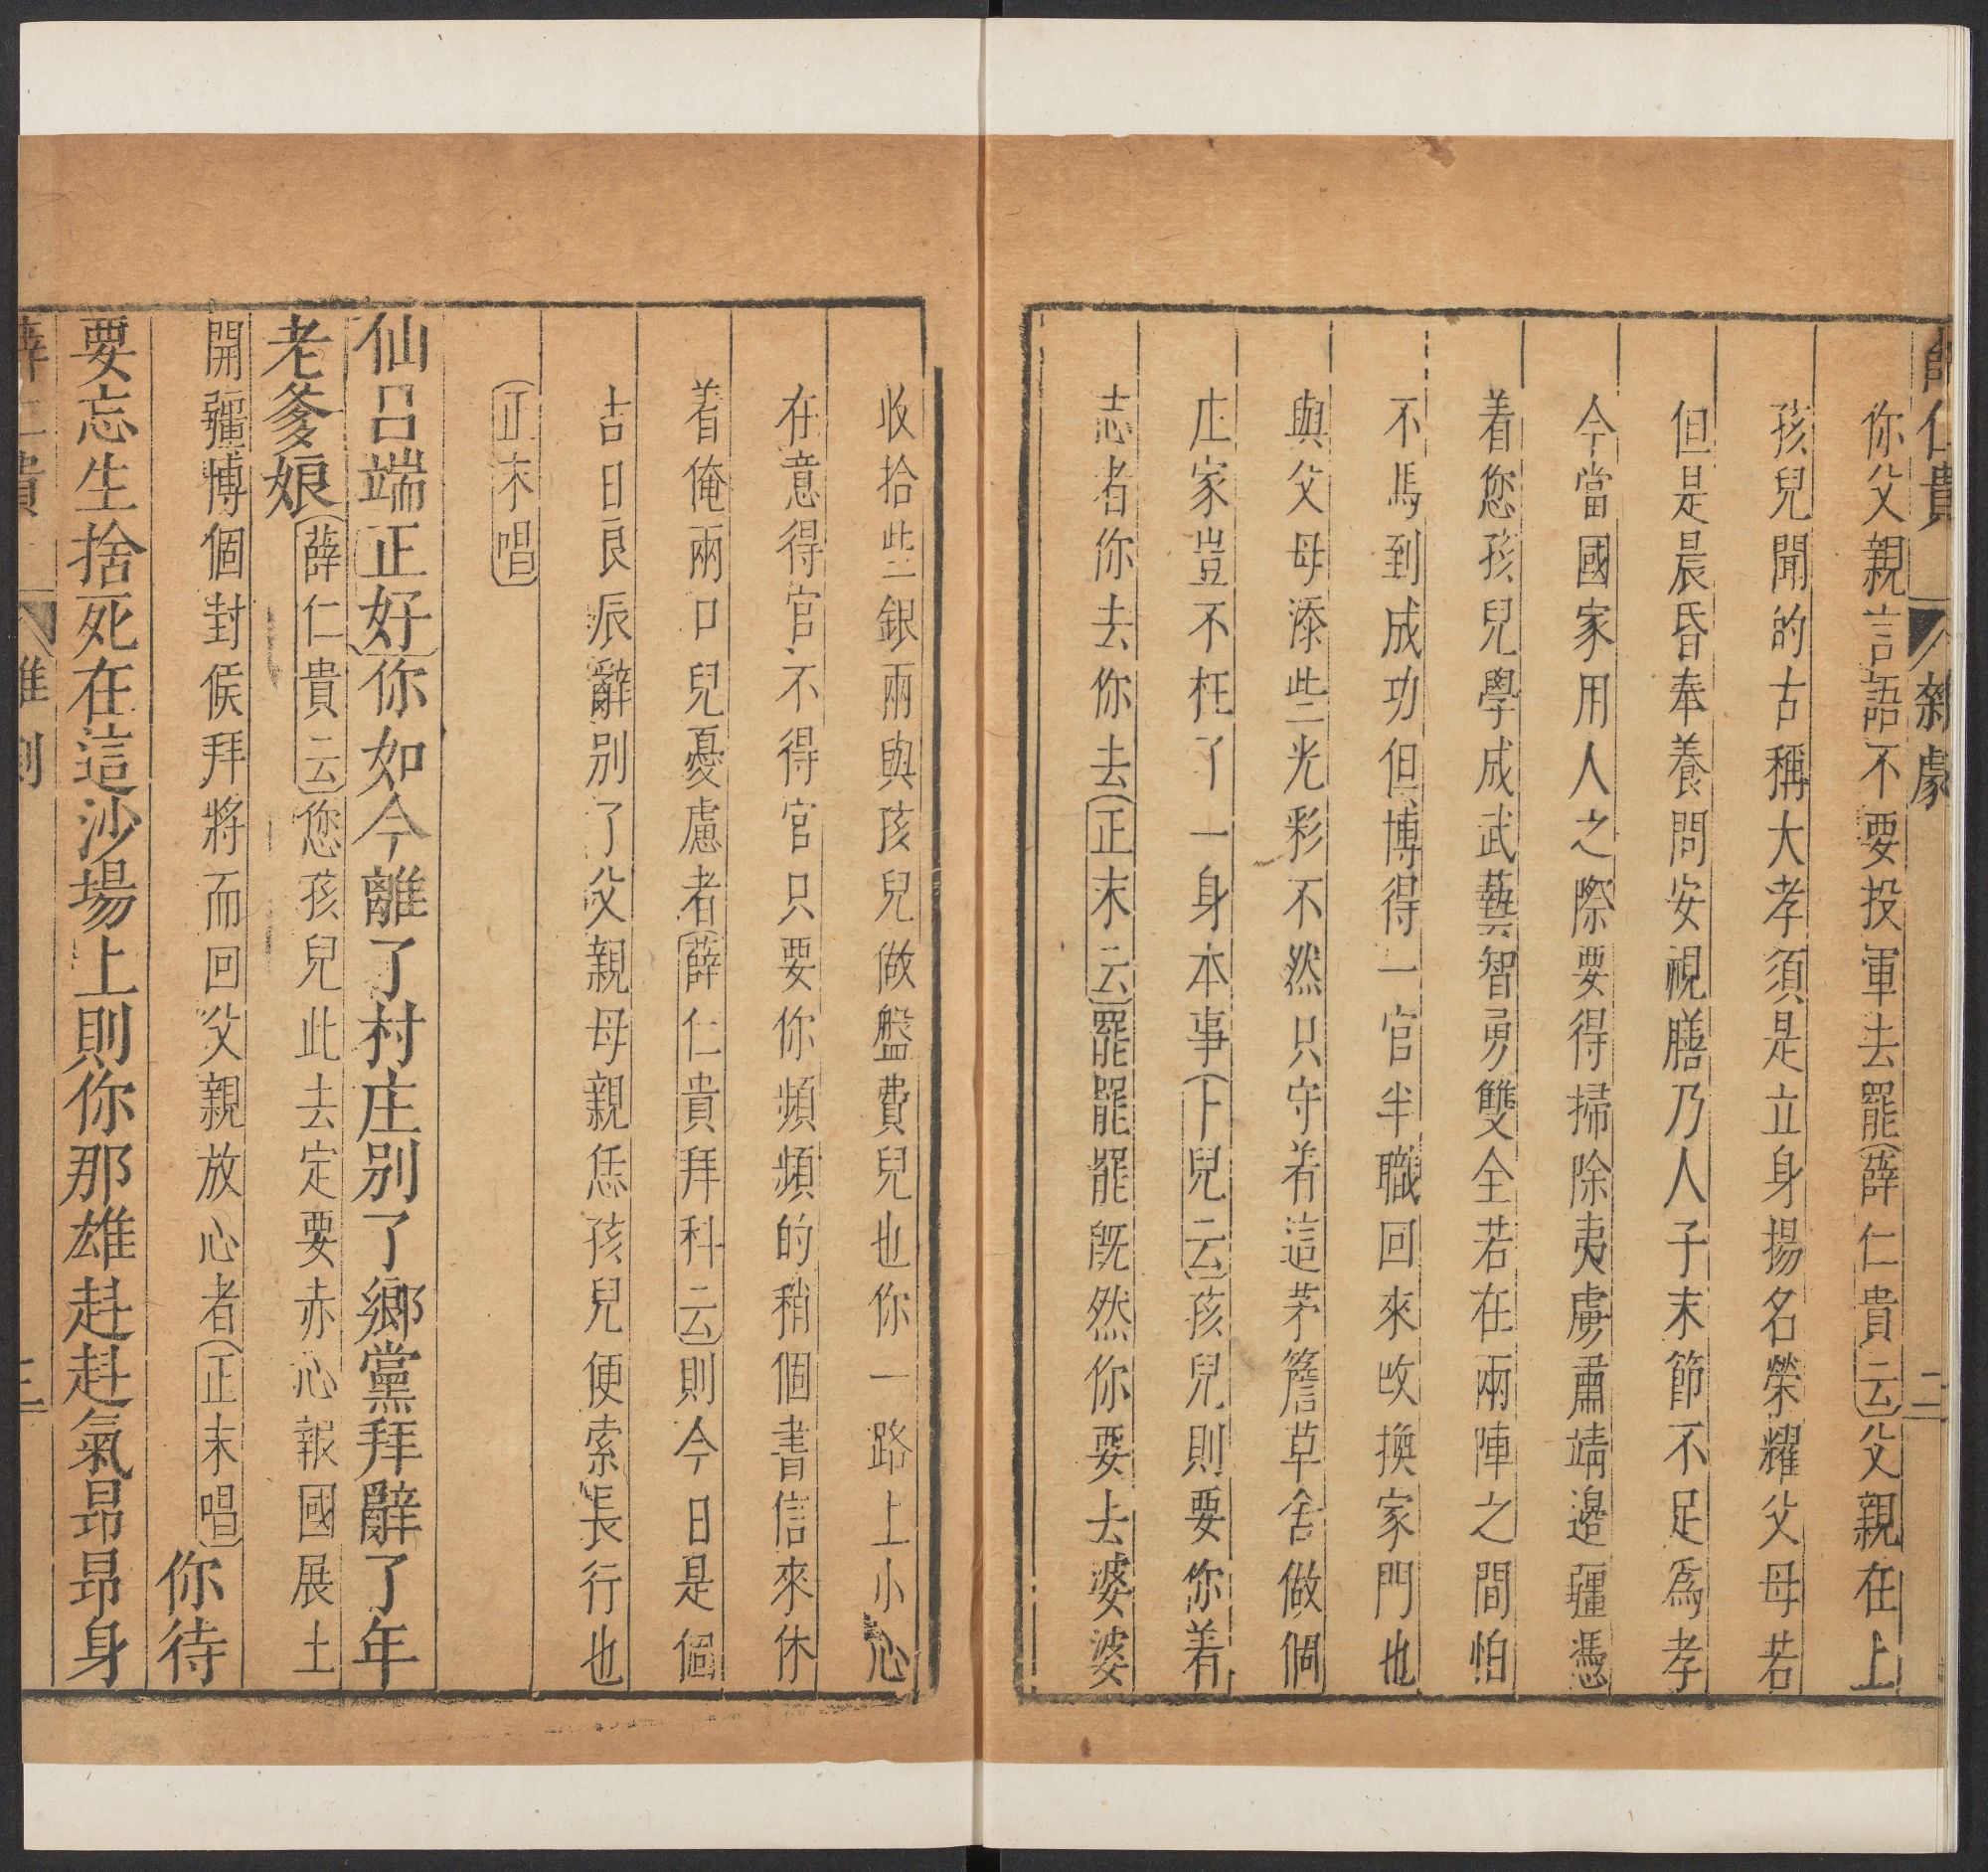 薛仁貴 雜劇 二
你父親言語不要投軍去罷(薛仁貴云)父親在上
孩兒聞的古稱大孝須是立身揚名榮耀父母若
但是晨昏奉養問安視膳乃人子末節不足爲孝
今當國家用人之際要得掃除夷虜肅靖邊疆憑
着您孩兒學成武藝智勇雙全若在兩陣之間怕
不馬到成功但博得一官半職回來改換家門也
與父母添些光彩不然只守着這茅簷草舍做個
庄家豈不枉了一身本事(卜兒云)孩兒則要你着
志者你去你去(正末云)罷罷罷旣然你要去婆婆
收拾些銀兩與孩兒做盤費兒也你一路上小心
在意得官不得官只要你頻頻的稍個書信來休
着俺兩口兒憂慮者(薛仁貴拜科云)則今日是個
吉日良辰辭別了父親母親恁孩兒便索長行也
(正末唱)
仙呂端正好你如今離了村庄別了鄉黨拜辭了年
老爹娘(薛仁貴云)您孩兒此去定要赤心報國展土
開疆博個封侯拜將而回父親放心者(正末唱)你待
要忘生捨死在這沙場上則你那雄赳赳氣昂昂身